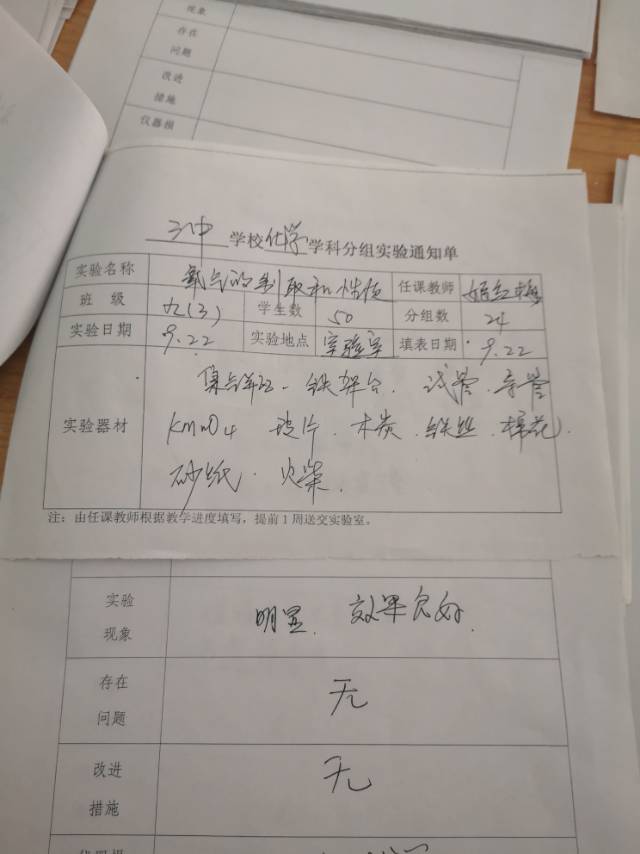 现象
存在
问题
改进
措施
仪器损
三中 学校化学学科分组实验通知单
实验名称 氧气的制取和性质 任课教师
班 级 九(3) 学生数 50 分组数 24
实验日期 9.22 实验地点 实验室 填表日期 9.22
实验器材 集气瓶 铁架台 试管 导管
KmnO4 玻片 木炭 铁丝 棉花
砂纸 火柴
注：由任课教师根据教学进度填写，提前1周送交实验室。
实验
现象 明显 效果良好
存在
问题 无
改进
措施 无